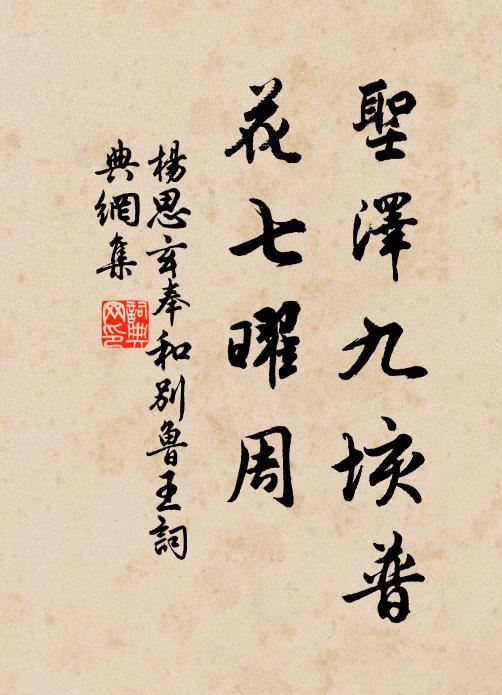 聖澤九垓普
花七曜周
楊思玄奉和別魯王詞
典網集
詞典
网印